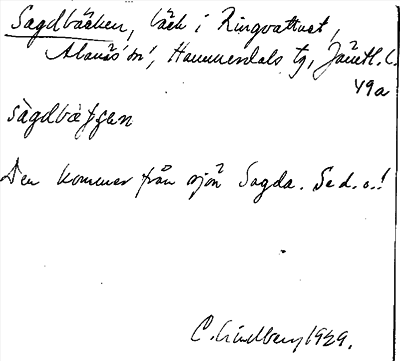 Sagdbäcken, bäck i Ringvattnet,
Alanäs sn, Hammerdals tg, Jämtl. l.
49a
sàgdbæ̀ʃʃen
Den kommer från sjön Sagda. Se d. o.!
C. Lindberg 1929.